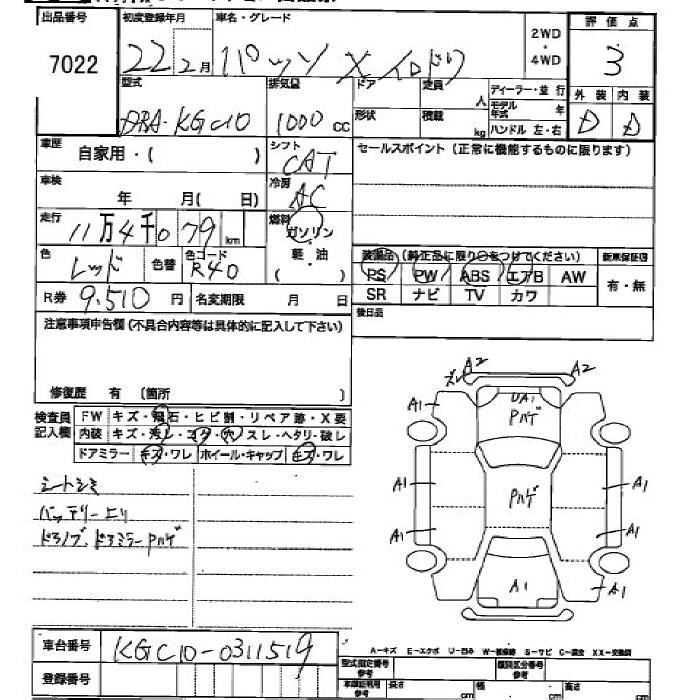 出品番号 初度登録年月 車名・グレード 2WD・4WD 評価点
7022 22 2月 パッソ X イロドリ 3
型式 排気量 ドア 定員 人 ディーラー・並行 外装 内装
DBA-KGC10 1000 cc 形状 積載 kg モデル年式 年 D D
ハンドル 左・右
車歴 自家用・( ) シフト CAT セールスポイント(正常に機能するものに限ります)
車検 年 月( 日) 冷房 AC
走行 11万4千079 km 燃料 ガソリン
軽・油
( )
色 レッド 色替 色コード R40 装備品(純正品に限り○をつけてください) 新車保証書
PS PW ABS エアB AW 有・無
SR ナビ TV カワ
R券 9,510 円 名変期限 月 日 後日品
注意事項申告欄(不具合内容等は具体的に記入して下さい)
修復歴 有 (箇所 )
検査員記入欄 FW キズ・飛石・ヒビ割・リペア跡・X要
内装 キズ・汚レ・コゲ・穴・スレ・ヘタリ・破レ
ドアミラー キズ・ワレ ホイール・キャップ キズ・ワレ
シートシミ
バッテリー上リ
ドアノブ、ドアミラーPハゲ
ズレ A2 A2
A1 UA1 A1
Pハゲ
A1 Pハゲ A1
A1 A1
A1 A1
車台番号 KGC10-0311519
登録番号
A-キズ E-エクボ U-凹み W-補修跡 S-サビ C-腐食 XX-交換済
型式指定番号 参考 類別区分番号 参考
車検証利用 参考 長さ cm 幅 cm 高 cm